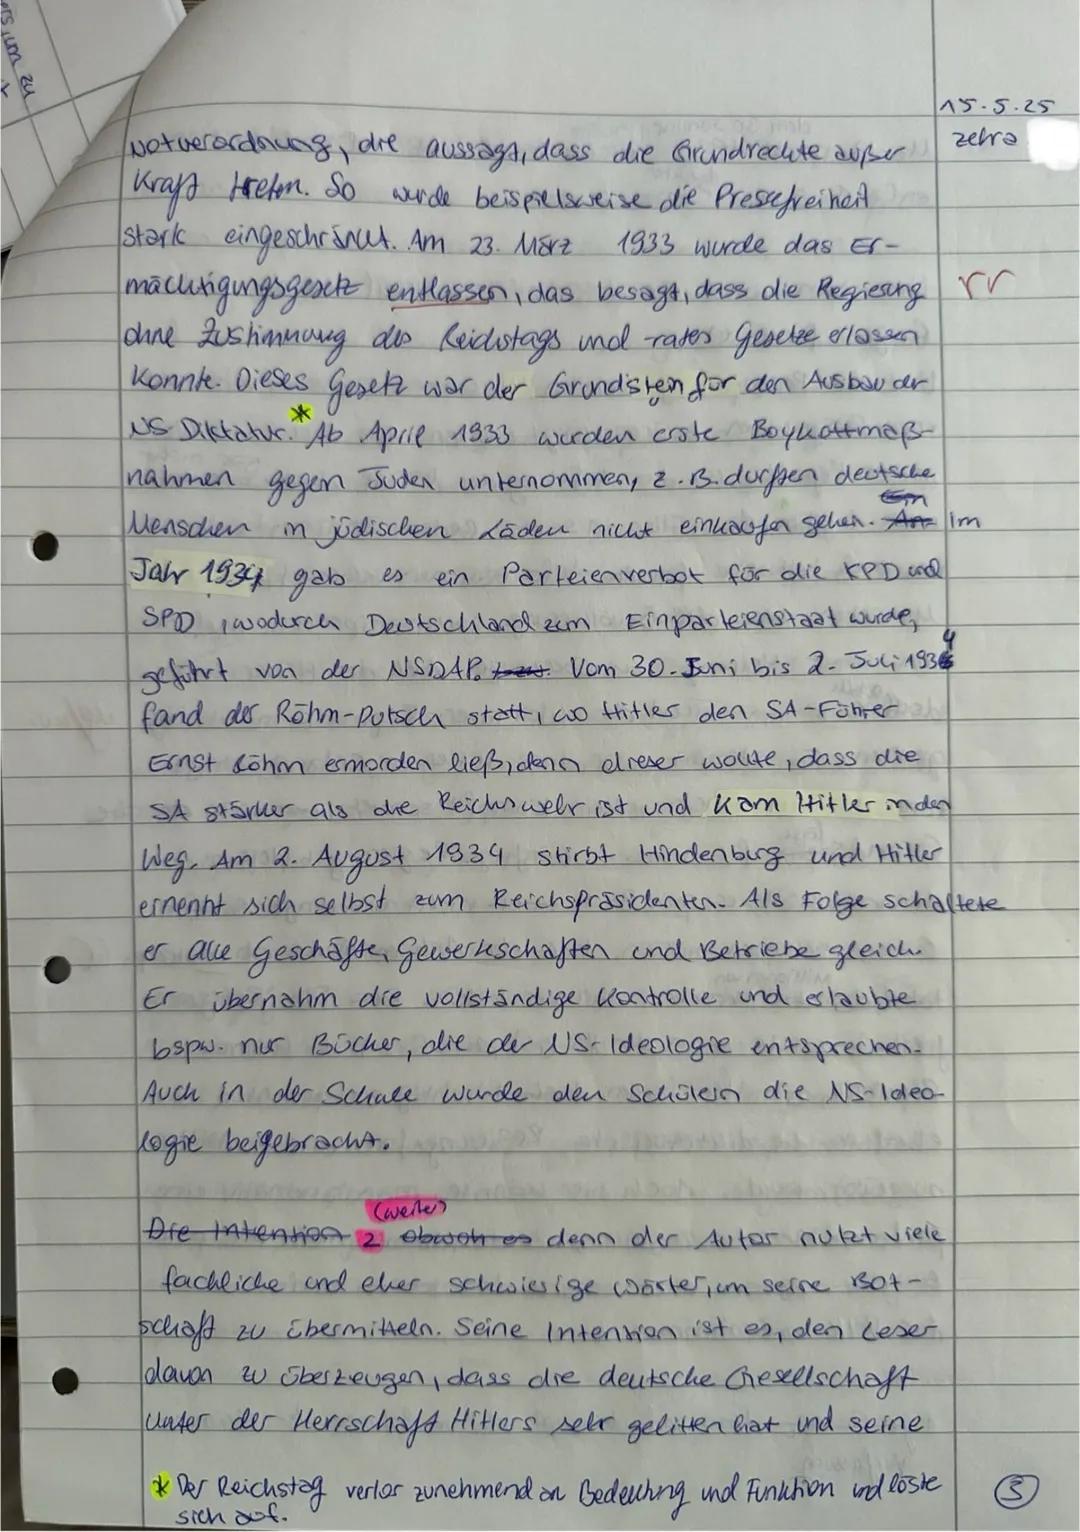 15.5.25
zehra
Notverordnung, die aussagt, dass die Grundrechte außer
Kraft treten. So wurde beispielsweise die Pressefreiheit
stark eingeschränkt. Am 23. März 1933 wurde das Er-
mächtigungsgesetz entlassen, das besagt, dass die Regierung rr
ohne Zustimmung des Reichstags und -rates Gesetze erlassen
konnte. Dieses Gesetz war der Grundstein für den Ausbau der
NS Diktatur.* Ab April 1933 wurden erste Boykottmaß-
nahmen gegen Juden unternommen, z.B. durften deutsche
Menschen in jüdischen Läden nicht einkaufen gehen. Im
Jahr 1934 gab es ein Parteienverbot für die KPD und
SPD, wodurch Deutschland zum Einparteienstaat wurde,
geführt von der NSDAP. Vom 30. Juni bis 2. Juli 1934
fand der Röhm-Putsch statt, wo Hitler den SA-Führer
Ernst Röhm ermorden ließ, denn dieser wollte, dass die
SA stärker als die Reichswehr ist und kam Hitler in den
Weg. Am 2. August 1934 stirbt Hindenburg und Hitler
ernennt sich selbst zum Reichspräsidenten. Als Folge schaltete
er alle Geschäfte, Gewerkschaften und Betriebe gleich.
Er übernahm die vollständige Kontrolle und erlaubte
bspw. nur Bücher, die der NS-Ideologie entsprechen.
Auch in der Schule wurde den Schülern die NS-Ideo-
logie beigebracht.
(weiter)
Die Intention 2 obwohl es denn der Autor nutzt viele
fachliche und eher schwierige Wörter, um seine Bot-
schaft zu übermitteln. Seine Intention ist es, den Leser
davon zu überzeugen, dass die deutsche Gesellschaft
unter der Herrschaft Hitlers sehr gelitten hat und seine
* Der Reichstag verlor zunehmend an Bedeutung und Funktion und löste
sich auf.
3